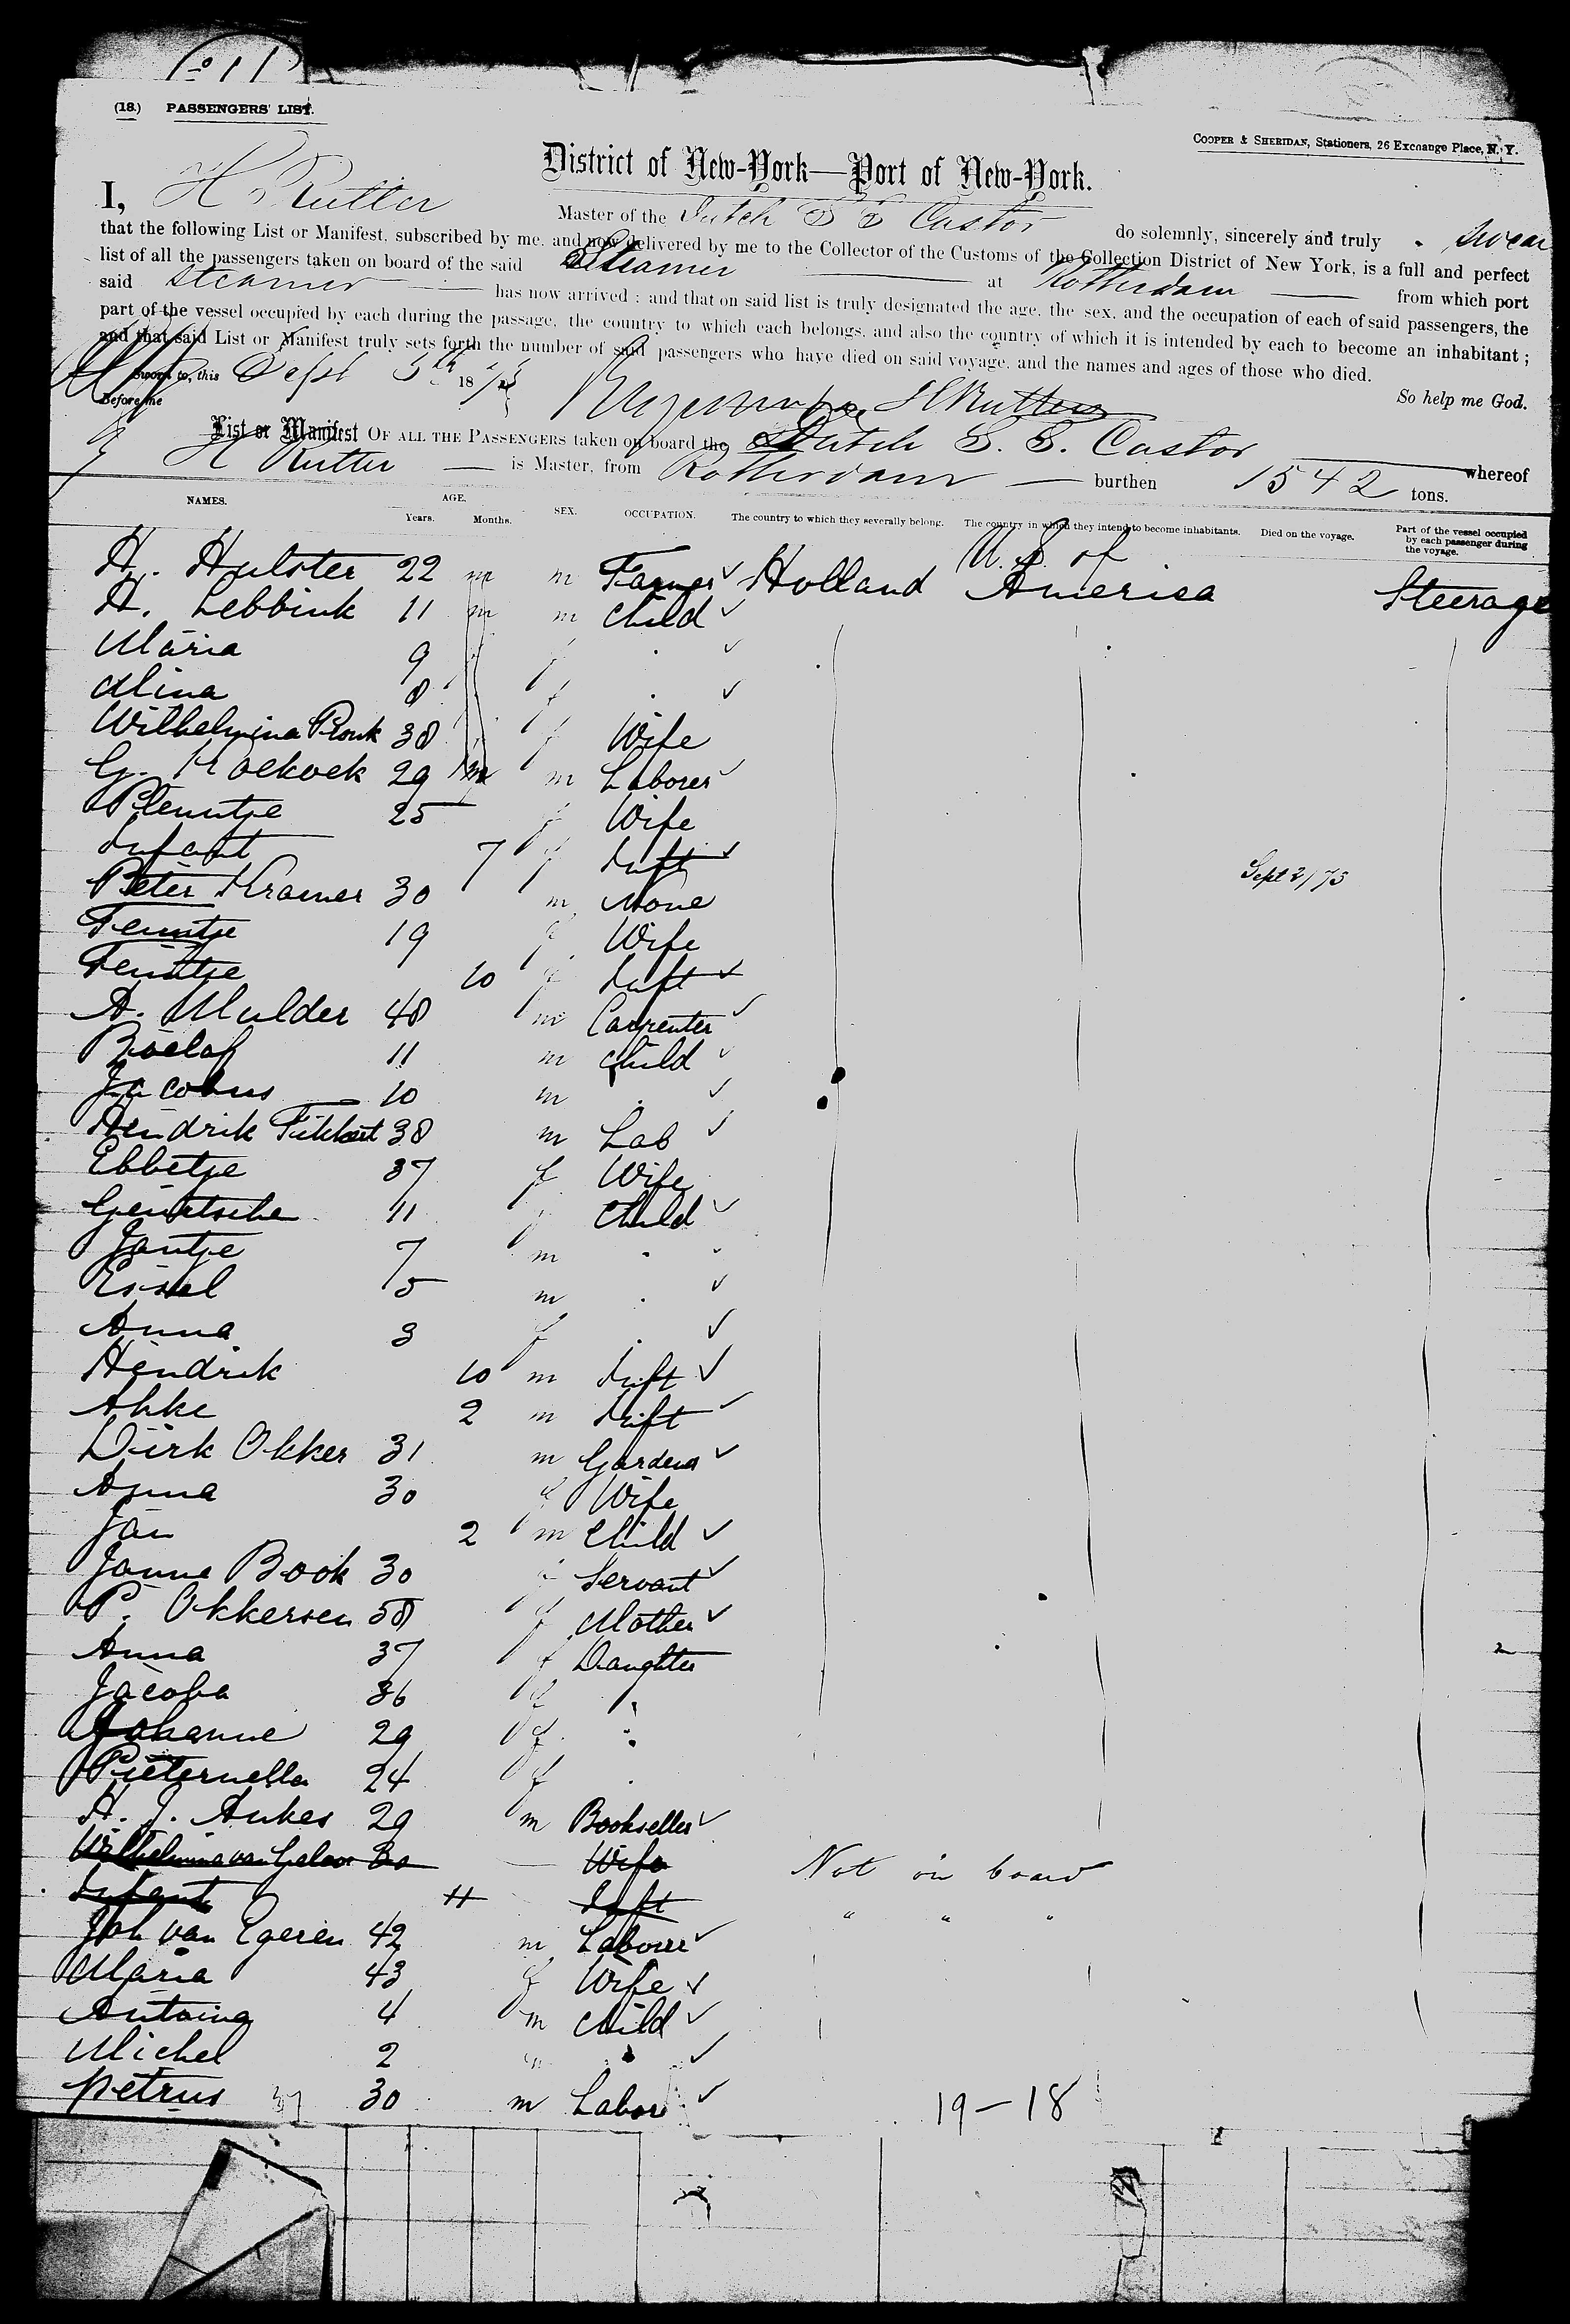 (18.) PASSENGERS' LIST.
COOPER & SHERIDAN, Stationers, 26 Exchange Place, N. Y.
District of New-York—Port of New-York.
I, H Rutter Master of the Dutch S S Castor do solemnly, sincerely and truly swear
that the following List or Manifest, subscribed by me, and now delivered by me to the Collector of the Customs of the Collection District of New York, is a full and perfect
list of all the passengers taken on board of the said Steamer at Rotterdam from which port
said steamer has now arrived ; and that on said list is truly designated the age, the sex, and the occupation of each of said passengers, the
part of the vessel occupied by each during the passage, the country to which each belongs, and also the country of which it is intended by each to become an inhabitant ;
and that said List or Manifest truly sets forth the number of said passengers who have died on said voyage, and the names and ages of those who died.
Sworn to, this Sept 5th 1875 So help me God.
Before me H Rutter
List or Manifest OF ALL THE PASSENGERS taken on board the Dutch S. S. Castor whereof
H Rutter is Master, from Rotterdam burthen 1542 tons.
NAMES. AGE. Years. Months. SEX. OCCUPATION. The country to which they severally belong. The country in which they intend to become inhabitants. Died on the voyage. Part of the vessel occupied by each passenger during the voyage.
H. Hulster 22 m Farmer Holland U. S. of America Steerage
H. Lebbink 11 m Child
Maria 9 f "
Mina 8 f "
Wilhelmina Pronk 38 f Wife
G. 29 m Laborer
25 f Wife
Infant 7 f Inft
Peter Kramer 30 m None Sept 2/75
Femtje 19 f Wife
Femtje 10 f Inft
A. Mulder 48 m Carpenter
Roelof 11 m Child
Jacobus 10 m "
Hendrik 38 m Lab
Ebbetje 37 f Wife
11 f Child
Jantje 7 m "
5 m "
Anna 3 f "
Hendrik 10 m Inft
2 m Inft
Dirk Okker 31 m Gardener
Anna 30 f Wife
Jan 2 m Child
Janna Book 30 f Servant
P. Okkersen 58 f Mother
Anna 37 f Daughter
Jacoba 36 f "
Johanne 29 f "
Pieternella 24 f "
H. J. Aukes 29 m Bookseller
Wilhelmina van 30 Wife Not on board
Infant 11 Inft " " "
Joh van Egeren 42 m Labourer
Maria 43 f Wife
4 m Child
Michel 2 " "
Petrus 30 m Labor
37
19 – 18